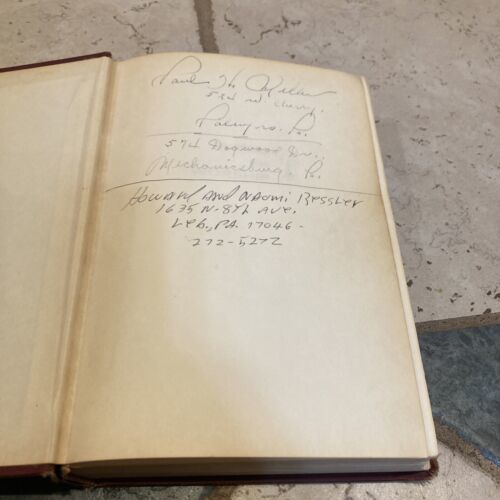 Paul H. Miller
524 W. Cherry,
Palmyra. Pa.
574 Dogwood Dr.,
Mechanicsburg. Pa.
Howard And Naomi Bessler
1635 N-8th Ave.
Leb., PA. 17046-
272-5272